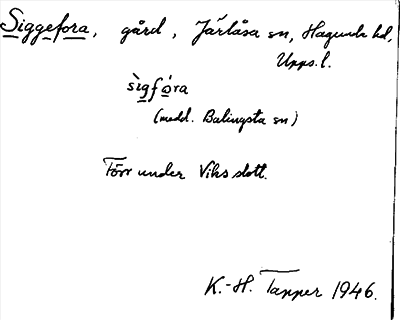 Siggefora, gård, Järlåsa sn, Hagunda hd,
Upps. l.
sìgfóra
(medd. Balingsta sn)
Förr under Viks slott.
K.-H. Tapper 1946.